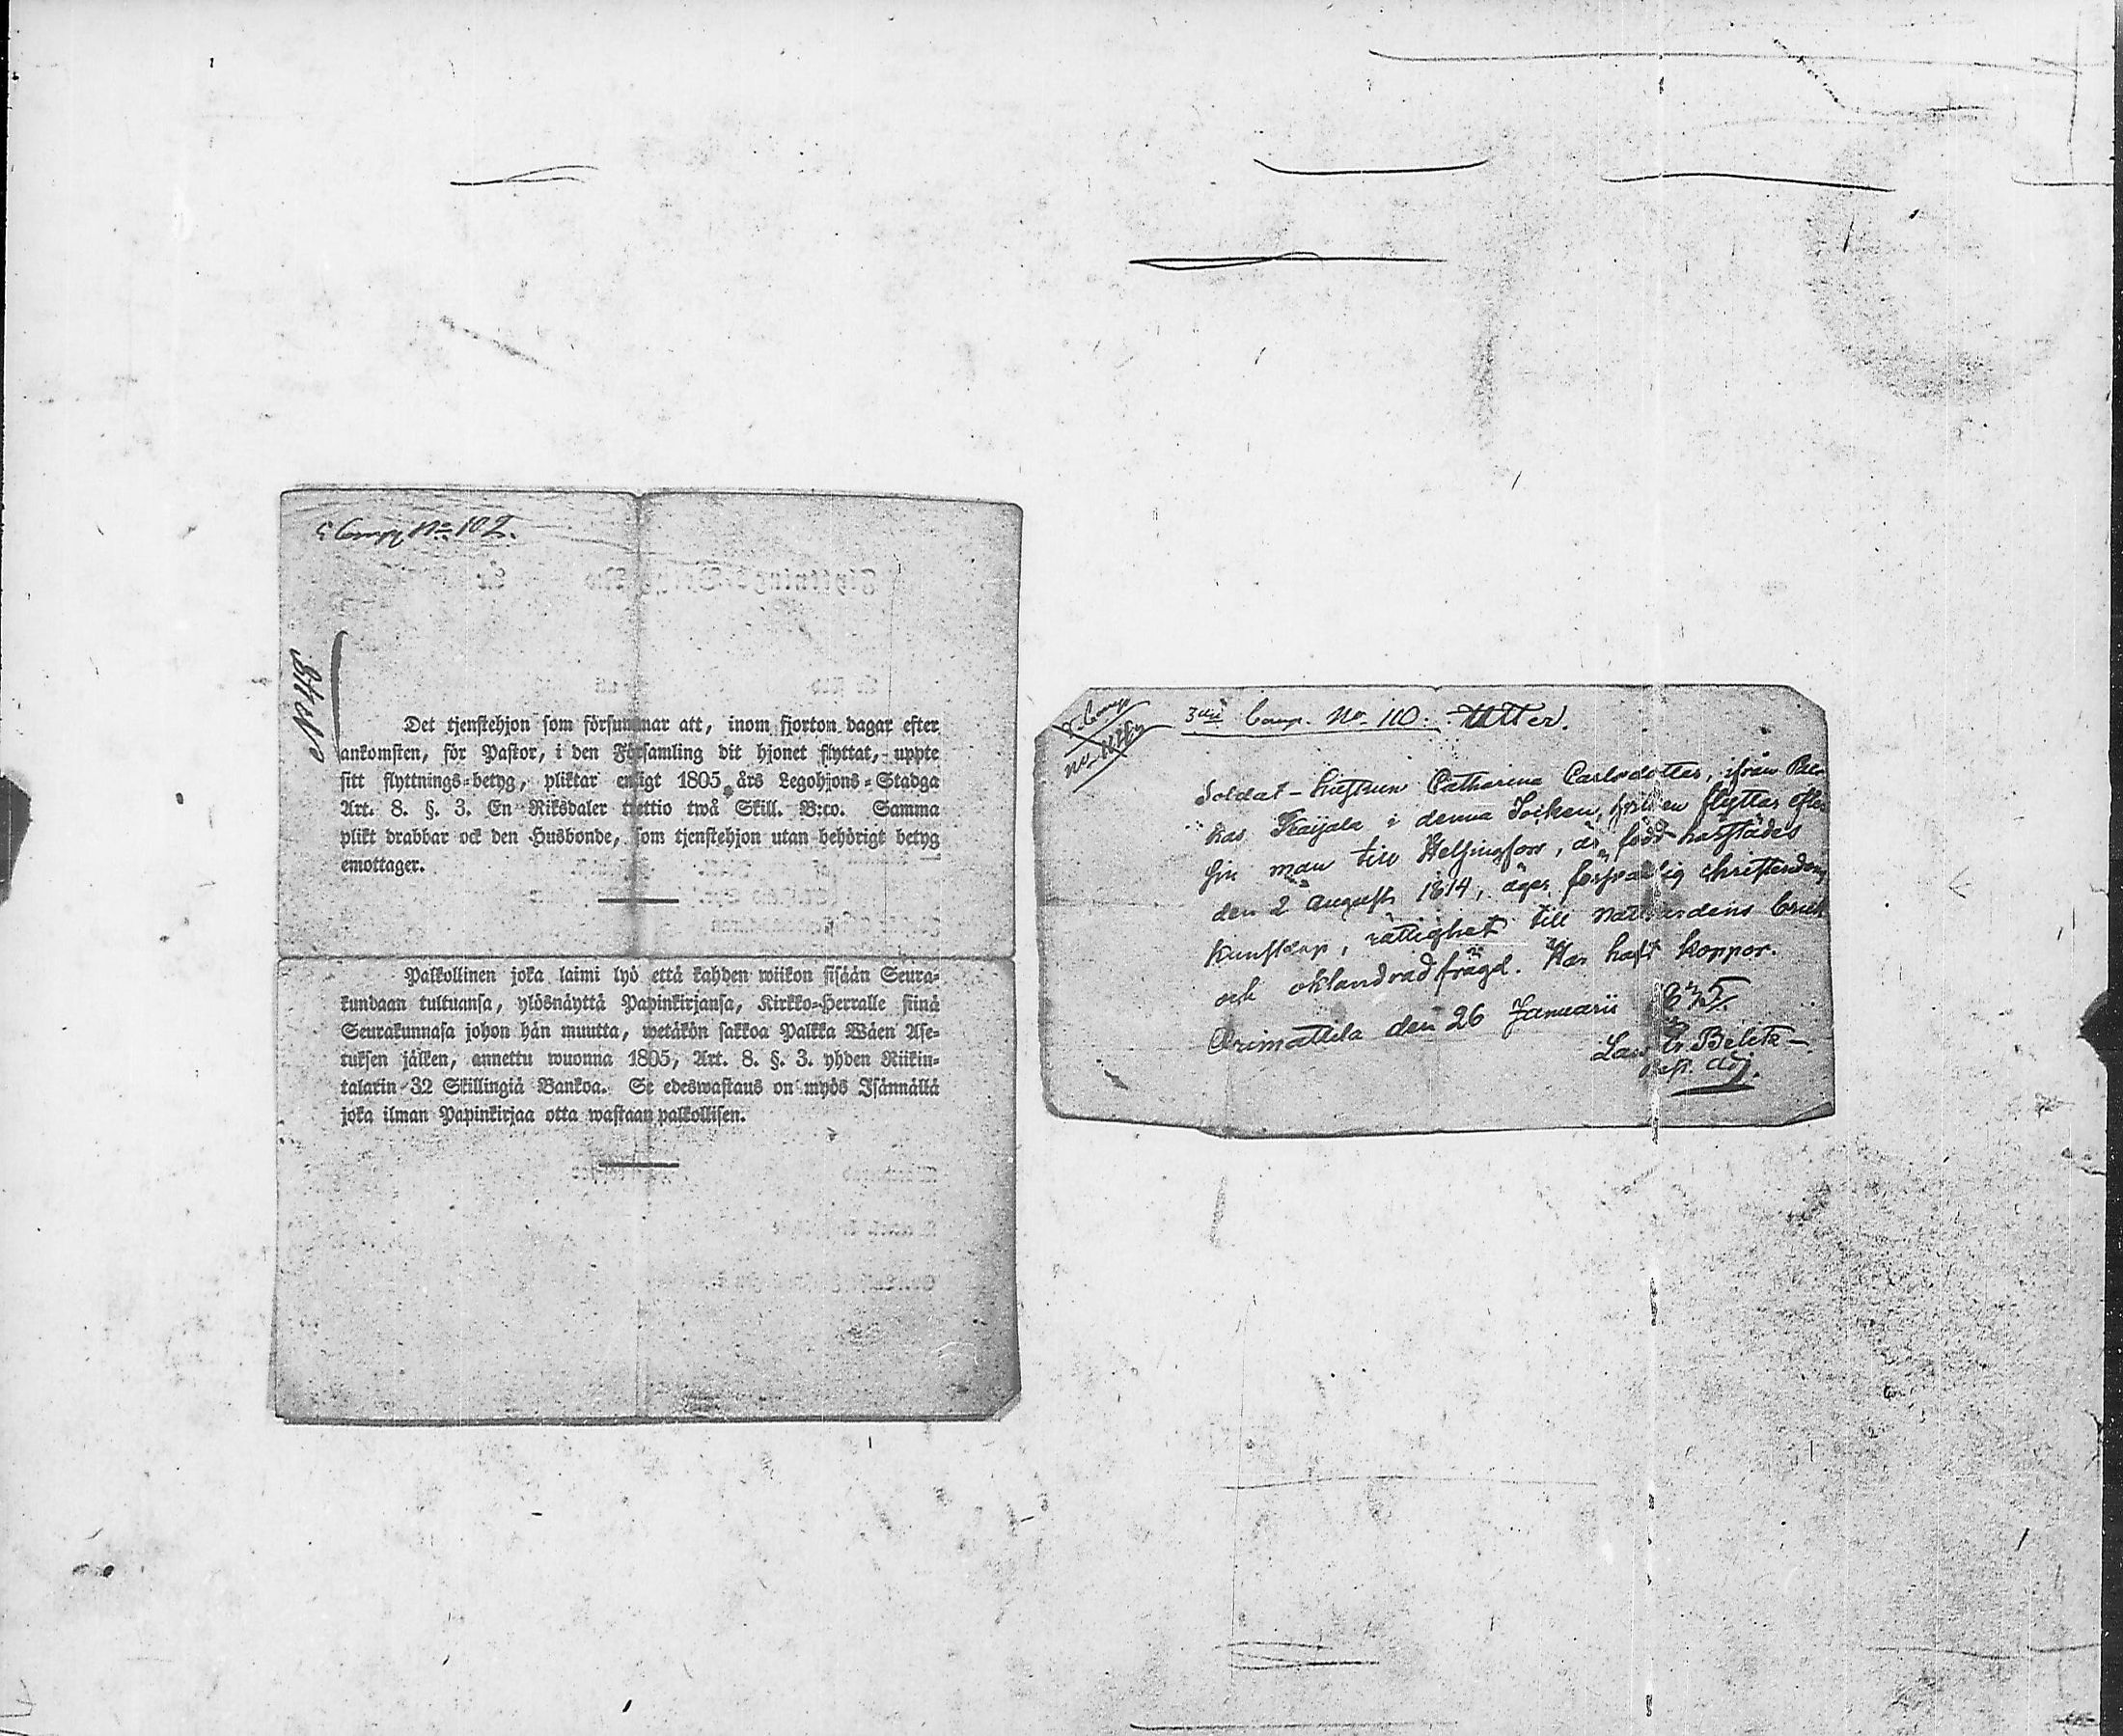 Comp No 102.
Det tjenstehjon som försummar att, inom fjorton dagar efter
ankomsten, för Pastor, i den Församling dit hjonet flyttat, uppte
sitt flyttnings-betyg, pliktar enligt 1805 års Legohjons-Stadga
Art. 8. §. 3. En Riksdaler trettio twå Skill. B:co. Samma
plikt drabbar ock den Husbonde, som tjenstehjon utan behörigt betyg
emottager.
Palkollinen joka laimi lyö että kahden wiikon sisään Seura-
kundaan tultuansa, ylösnäyttä Papinkirjansa, Kirkko-Herralle siinä
Seurakunnasa johon hän muutta, wetäkön sakkoa Palkka Wäen Ase-
tuksen jälken, annettu wuonna 1805, Art. 8. §. 3. yhden Riikin-
talarin 32 Skillingiä Bankoa. Se edeswastaus on myös Isännällä
joka ilman Papinkirjaa otta wastaan palkollisen.
3die Comp. No 110. Utter.
Soldat-hustrun Catharina Carlsdotter, ifrån
Kaijala i denna Socken, flyttar efter
sin man till Helsingfors, är född härstädes
den 2 Augusti 1814, äger försvarlig christendoms
kunskap, rättighet till nattvardens bruk
och oklandrad frägd. Har haft koppor.
Orimattila den 26 Januarii